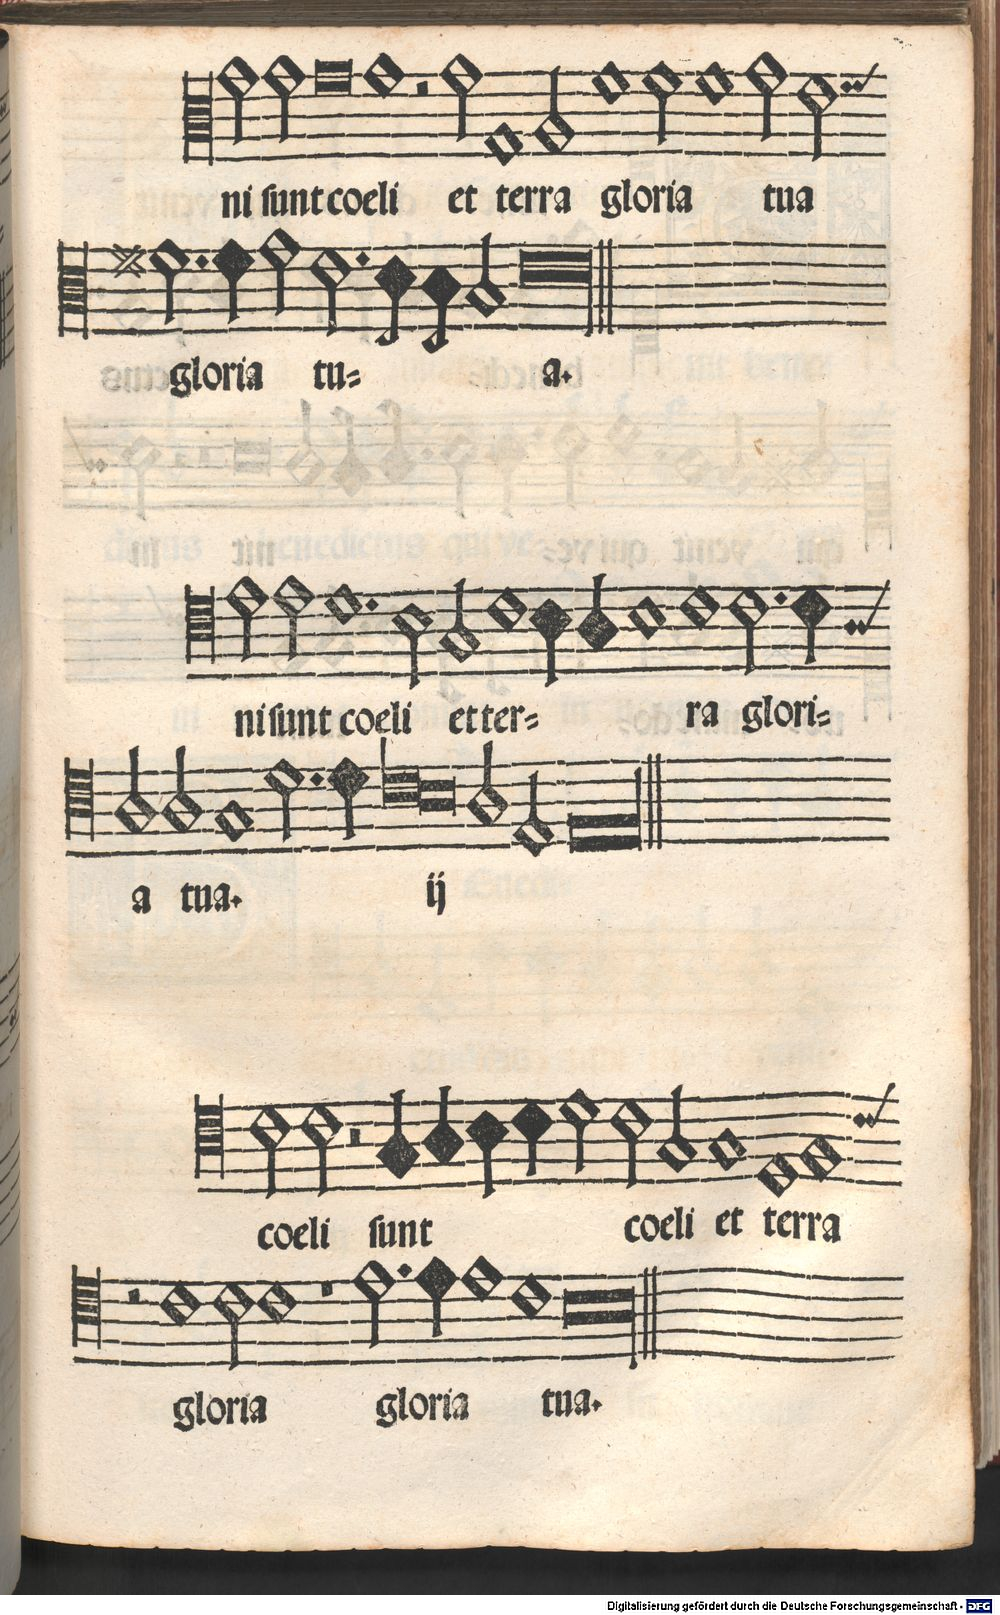 ni sunt coeli et terra gloria tua
gloria tu= a.
ni sunt coeli et ter= ra glori=
a tua. ij
coeli sunt coeli et terra
gloria gloria tua.
Digitalisierung gefördert durch die Deutsche Forschungsgemeinschaft - DFG